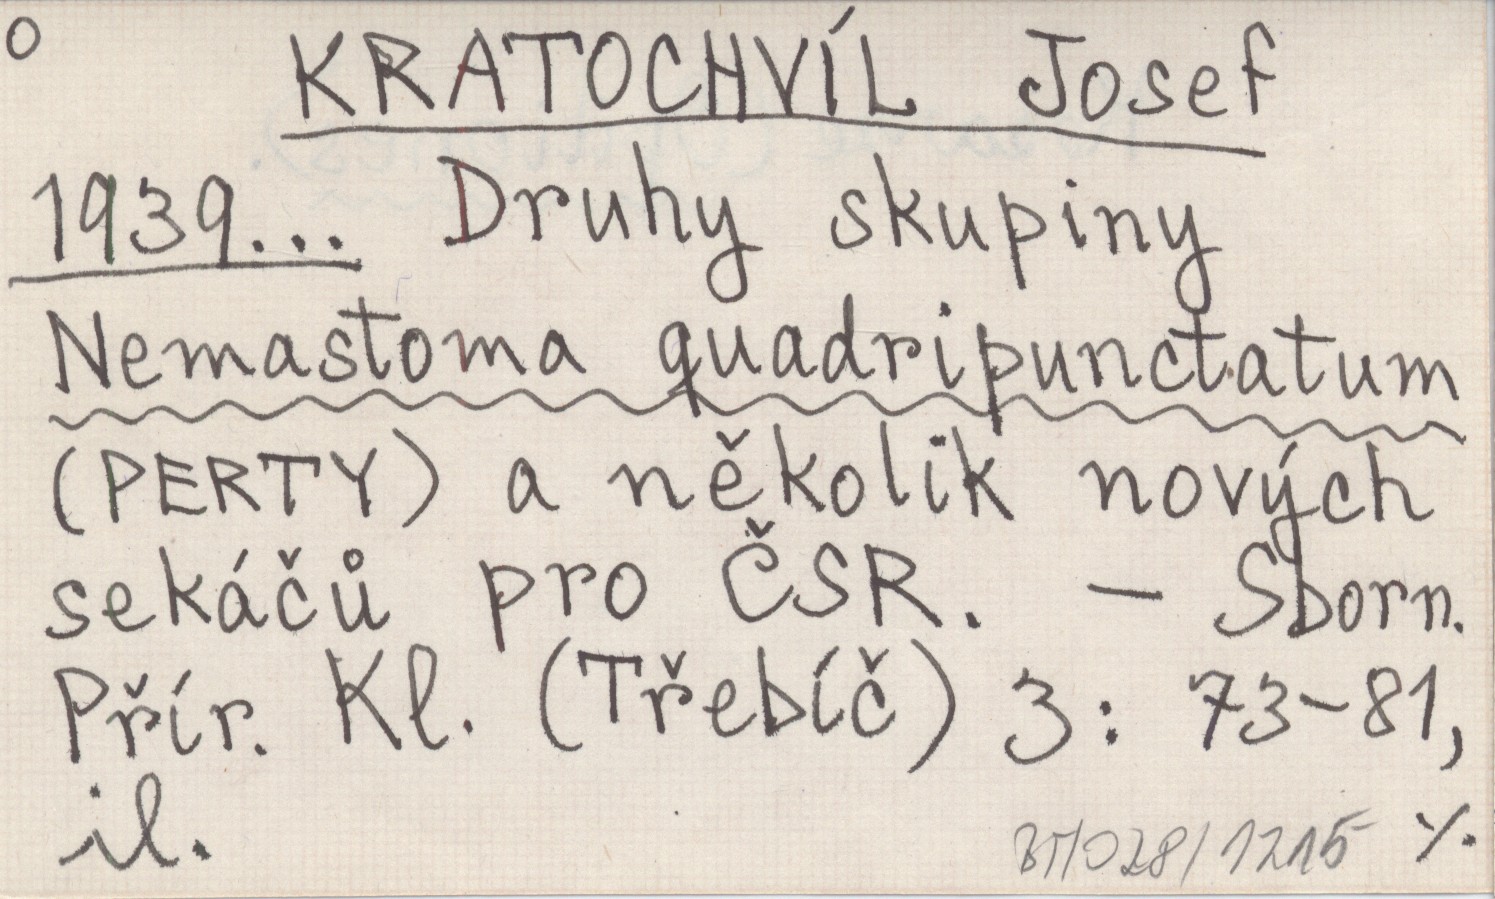 O
KRATOCHVÍL Josef
1939... Druhy skupiny
Nemastoma quadripunctatum
(PERTY) a několik nových
sekáčů pro ČSR. - Sborn.
Přír. Kl. (Třebíč) 3: 73-81,
il.
/028/1215 ·/.